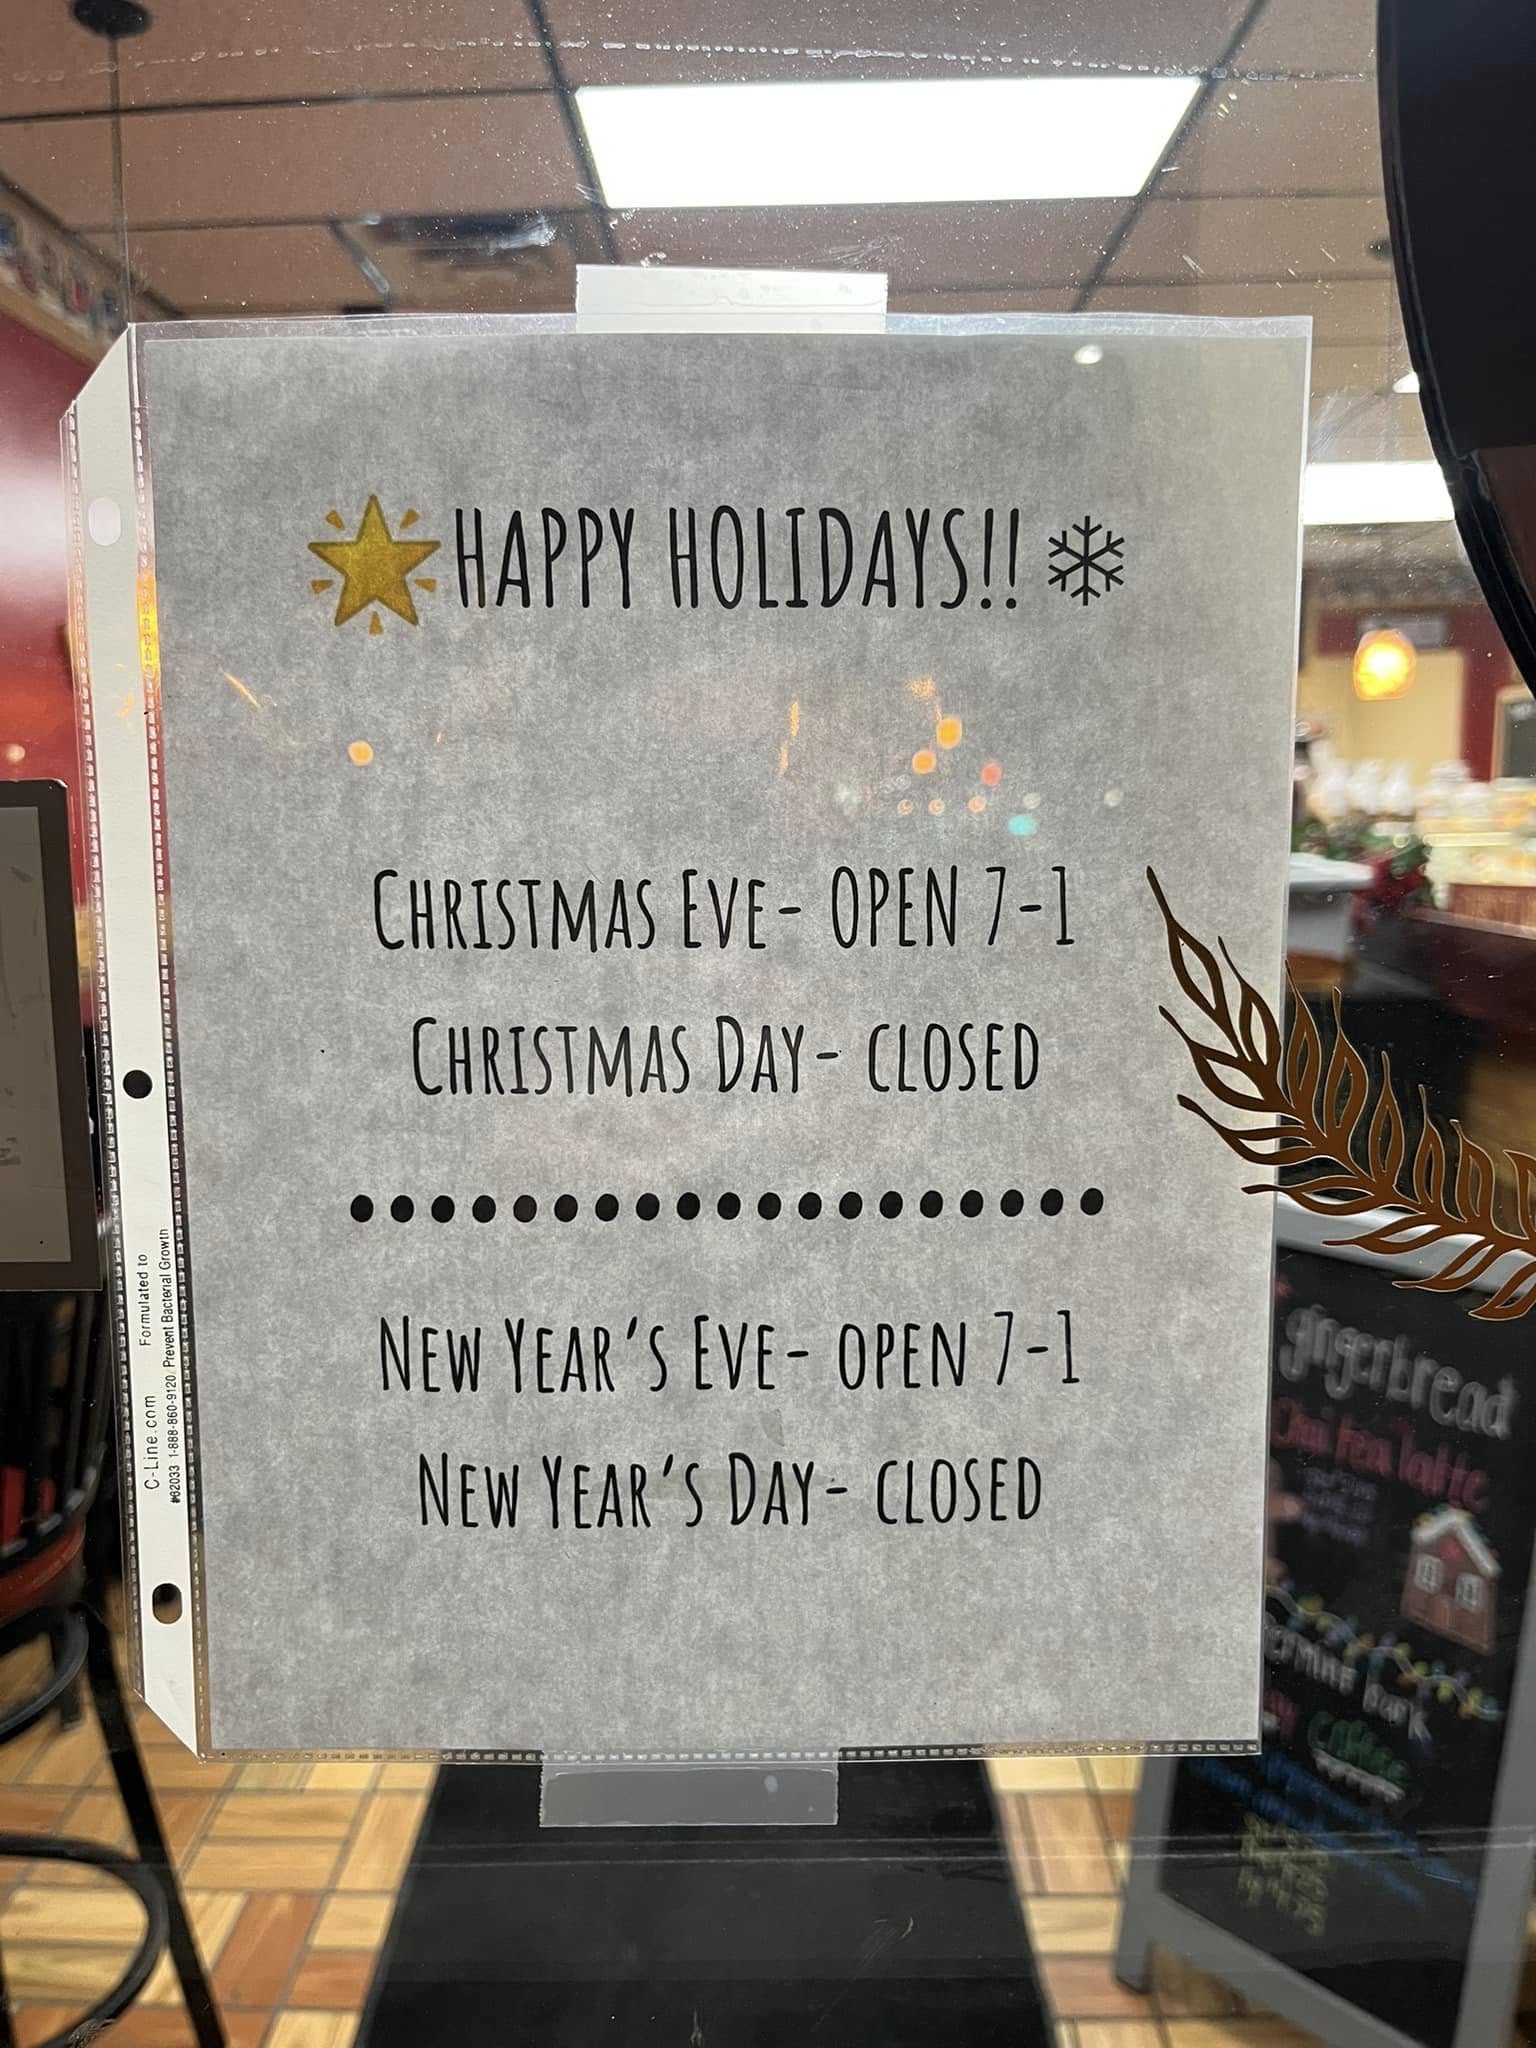 🌟HAPPY HOLIDAYS!! ❄
CHRISTMAS EVE- OPEN 7-1
CHRISTMAS DAY- CLOSED
NEW YEAR'S EVE- OPEN 7-1
NEW YEAR'S DAY- CLOSED
C-Line.com Formulated to
#62033 1-888-860-9120 Prevent Bacterial Growth
gingerbread
Chai tea latte
bark
Coffee